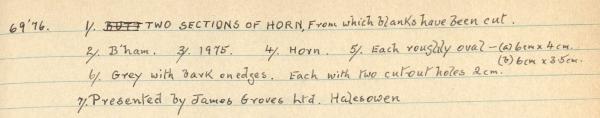 69'76. 1/. BUTT TWO SECTIONS OF HORN, From which blanks have been cut.
2/. B'ham. 3/. 1975. 4/. Horn. 5/. Each roughly oval – (a) 6cm x 4cm.
(b) 6cm x 3.5cm.
6/. Grey with dark on edges. Each with two cut out holes 2cm.
7/. Presented by James Groves Ltd. Halesowen